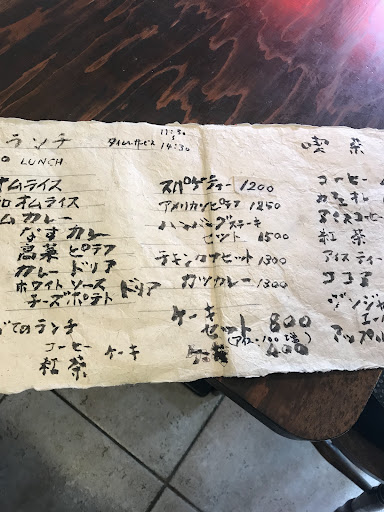 ランチ
タイムサービス 11:30〜14:30
LUNCH
オムライス
オムライス
ムカレー
なすカレー
高菜ピラフ
カレードリア
ホワイトソース
チーズポテト
ドリア
べてのランチ
コーヒー
紅茶
ケーキ
スパゲティー 1200
アメリカンピラフ 1250
ハンバーグステーキ
セット 1500
チキンカツセット 1300
カツカレー 1300
ケーキ
セット 800
ケーキ 400
喫茶
コーヒー
カフェオレ
アイスコーヒー
紅茶
アイスティー
ココア